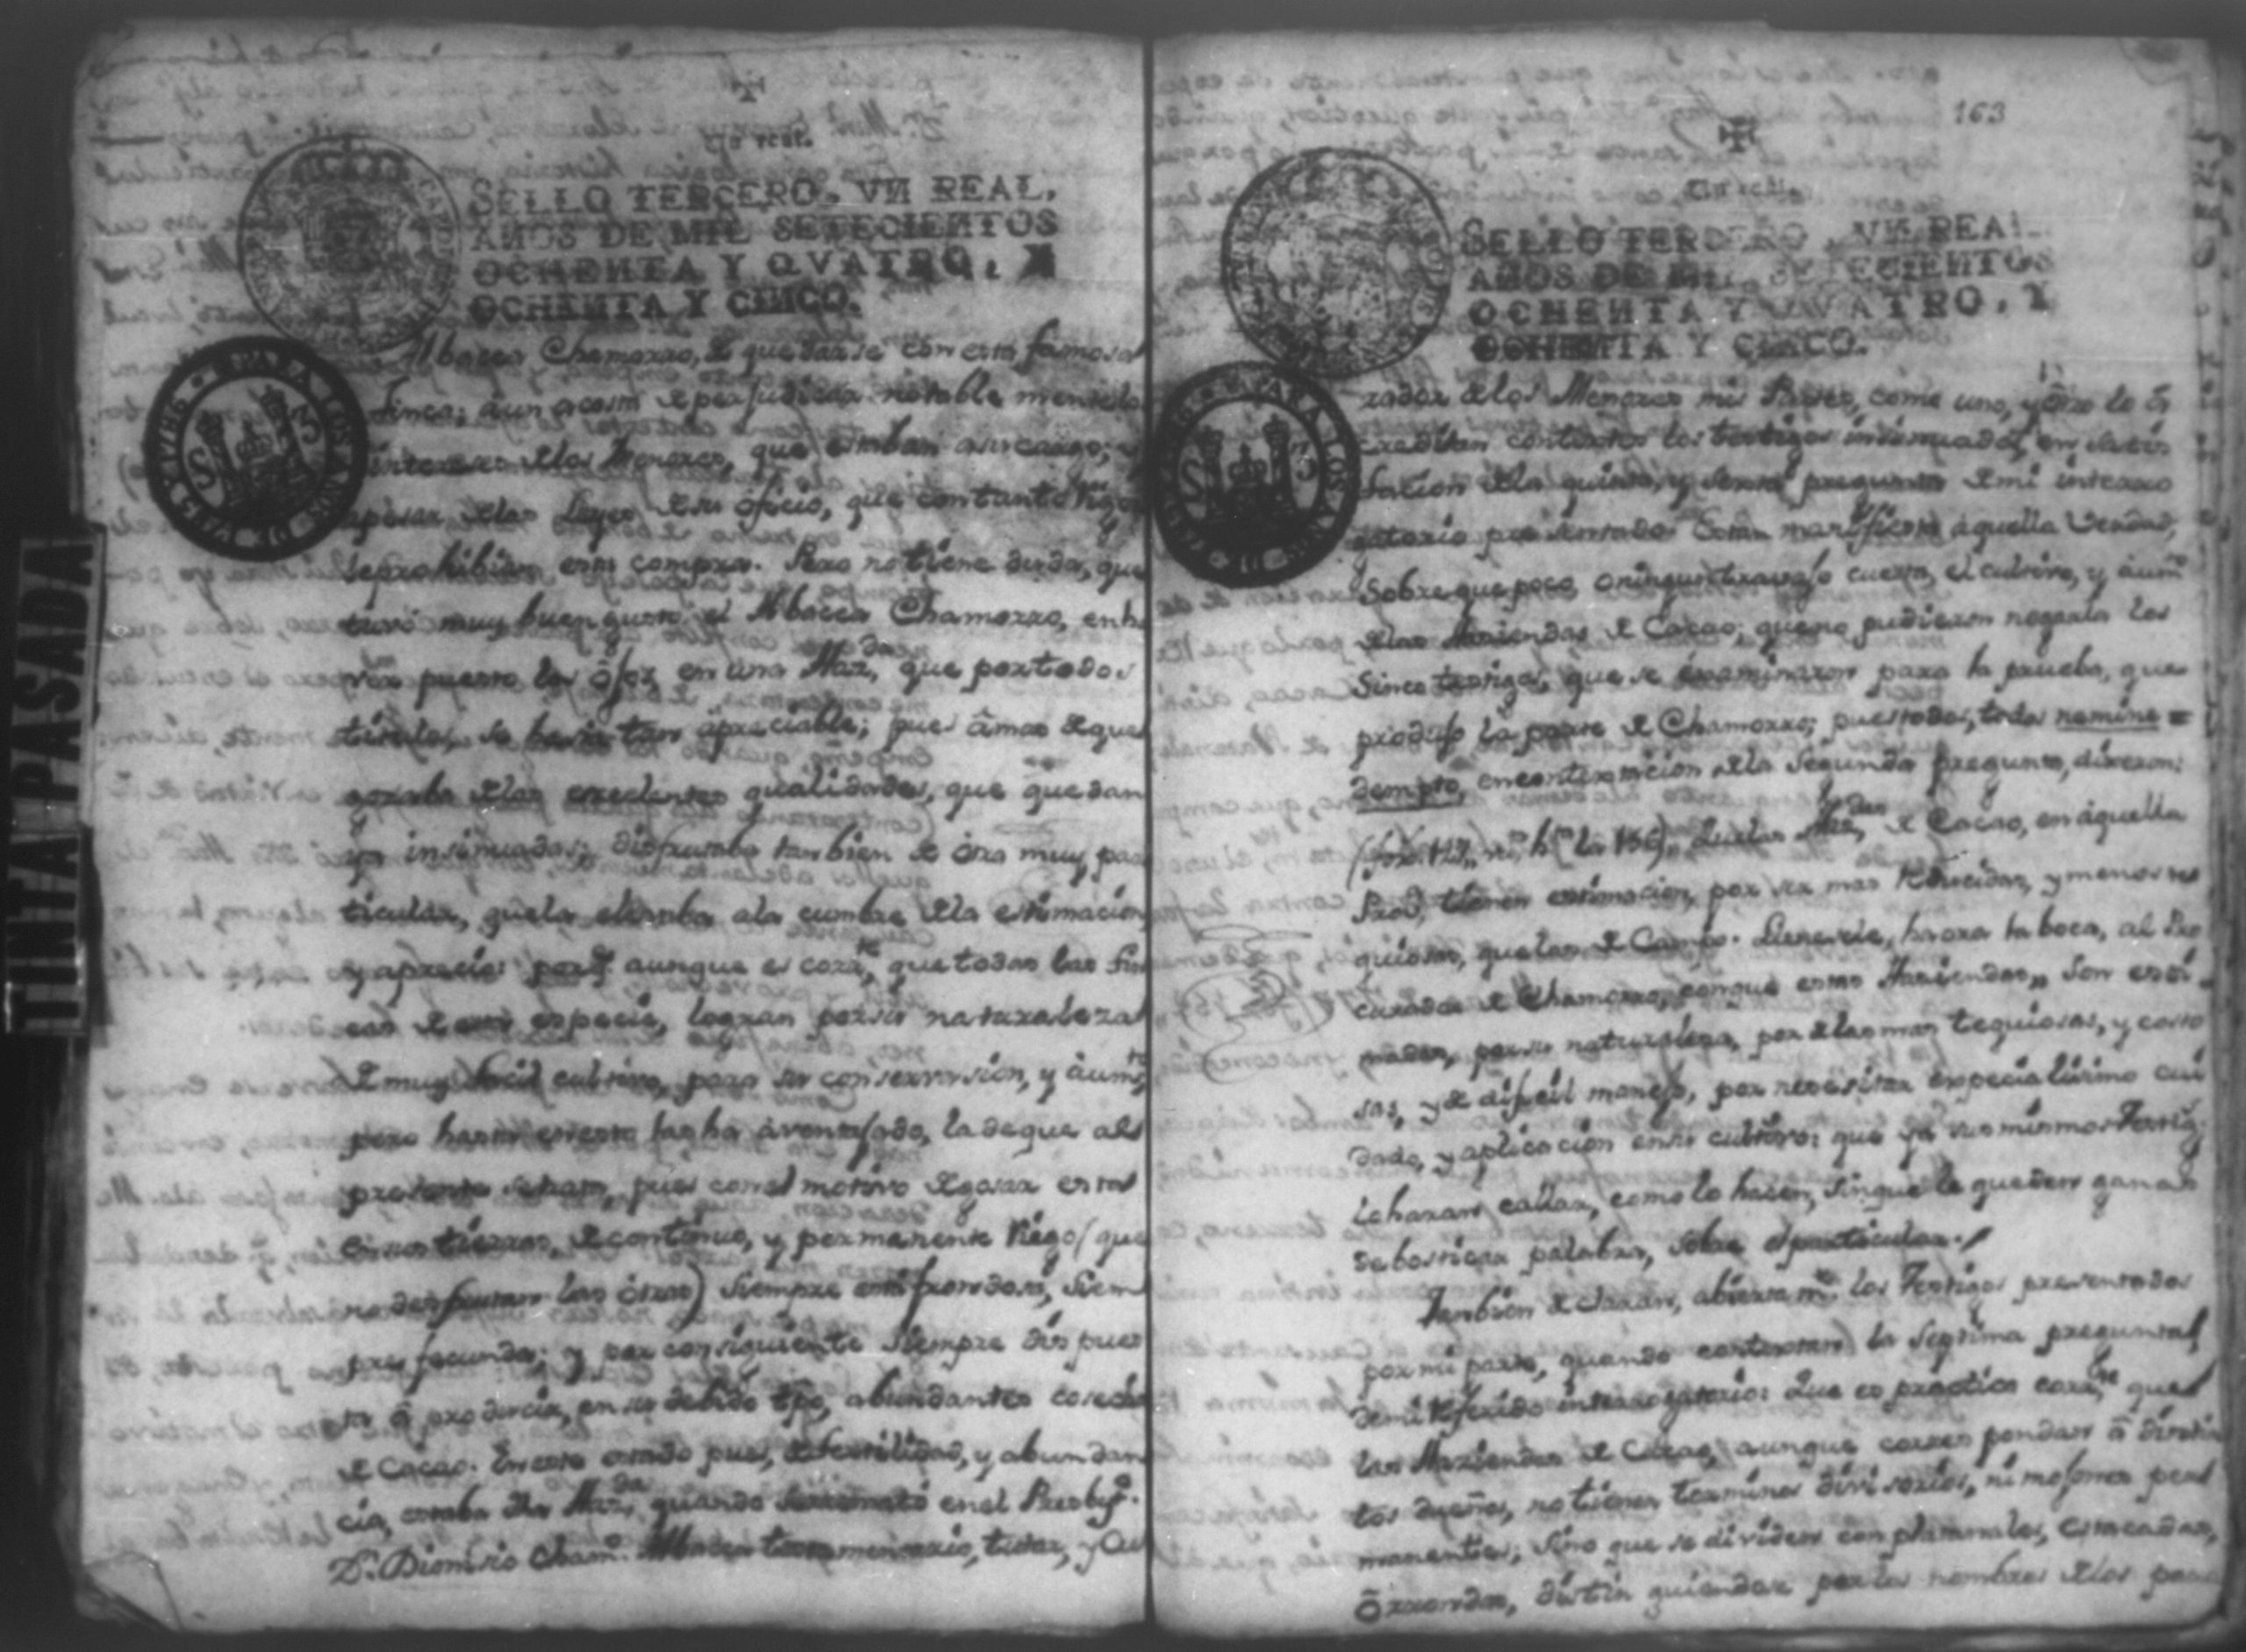 Un real.
SELLO TERCERO, VN REAL,
AÑOS DE MIL SETECIENTOS
OCHENTA Y QVATRO, Y
OCHENTA Y CINCO.
Albacea Chamorro, de quedarse con esta famosa
finca; aun acosta de perjudicar notablemente los
intereses delos Menores, que estaban asucargo; y
apesar delas Leyes desu oficio, que contanto rigor
leprohibian esta compra. Pero notiene duda, que
tuvo muy buen gusto el Albacea Chamorro, enha
ver puesto los ôjos en una Haz.da que portodos
titulos, se hacia tan apreciable; pues âmas deque
gozaba delas excelentes qualidades, que quedan
ya insinuadas; disfrutaba tambien de ôtra muy par
ticular, quela elevaba ala cumbre dela estimacion
y aprecio: porq.e aunque es corr.te que todas las fin
cas de esta especie, logran porsu naturaleza
de muy facil cultivo, para su conservasion, y aum.to
pero hasta enesto las ha aventajado, la deque al
presente setrata, pues conel motivo degosar estas
en sus tierras, decontinuo, y permanente Riego (que
no desfrutan las ôtras) siempre está frondosa, siem
pre fecunda; y por consiguiente siempre dispues
ta â producir, en su debido tpõ, abundantes cosechas
de Cacao. En este estado pues, de fertilidad, y abundan
cia, estaba dha Haz.da quando seremató enel Presby.o
D.n Dionisio Cham.o Albacea testamentario, tutor, y Cu
163
Un real.
SELLO TERCERO, VN REAL,
AÑOS DE MIL SETECIENTOS
OCHENTA Y QVATRO, Y
OCHENTA Y CINCO.
rador delos Menores mis Partes, como uno, y ôtro lo â
creditan contestes los testigos insinuados, en satis
facion dela quinta, y sexta pregunta demi interro
gatorio presentado. Estan manifiesta aquella Verdad,
sobreque poco, oningun travajo cuesta, el cultivo, y aum.to
delas Haziendas de Cacao; queno pudieron negarla los
sinco testigos, que se êxaminaron para la prueba, que
produjo la parte de Chamorro; puestodos, todos nemine =
dempto, encontestacion dela Segunda pregunta, dixeron:
(fox. 147,, hta la 156),, Quelas Haz.das de Cacao, en aquella
Prov.a tienen estimacion, por ser mas Floxidas, y menos te
quiosas, quelas de Campo. Llenesele, haora la boca, al Pro
curador de Chamorro, conque estas Haziendas,, son esti
madas, porsu naturaleza, por delas mas tequiosas, y costo
sas, y de dificil manejo, por necesitar especialisimo cui
dado, y aplicacion ensu cultivo: que ya sus mismos Testig.s
loharan callar, como lo hacen, sinque le queden ganas
debolver a palabra, sobre el particular.
Tanbien declaran, abierta m.te los Testigos presentados
por mi parte, quando contestan la Septima pregunta
demi referido interrogatorio: Que es practica corr.te que
las Haziendas de Cacao, aunque correspondan â distin
tos dueños, no tienen terminos divisorios, ni mojones per
manentes; sino que se dividen con platanales, estacadas,
ô rrondas, distinguiendose por los nombres delos par
S
PARA LOS AÑOS DE 1785 Y 1786
TINTA PASADA